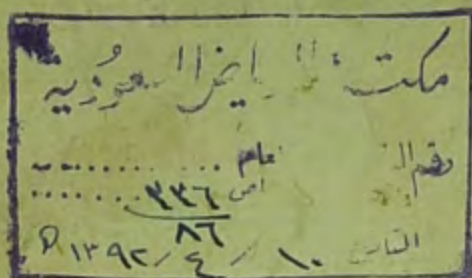 مكتبة الرياض السعودية
رقم ال عام ............
خاص ٣٣٦ / ٨٦
التاريخ ١٠ / ٤ / ١٣٩٢ هـ